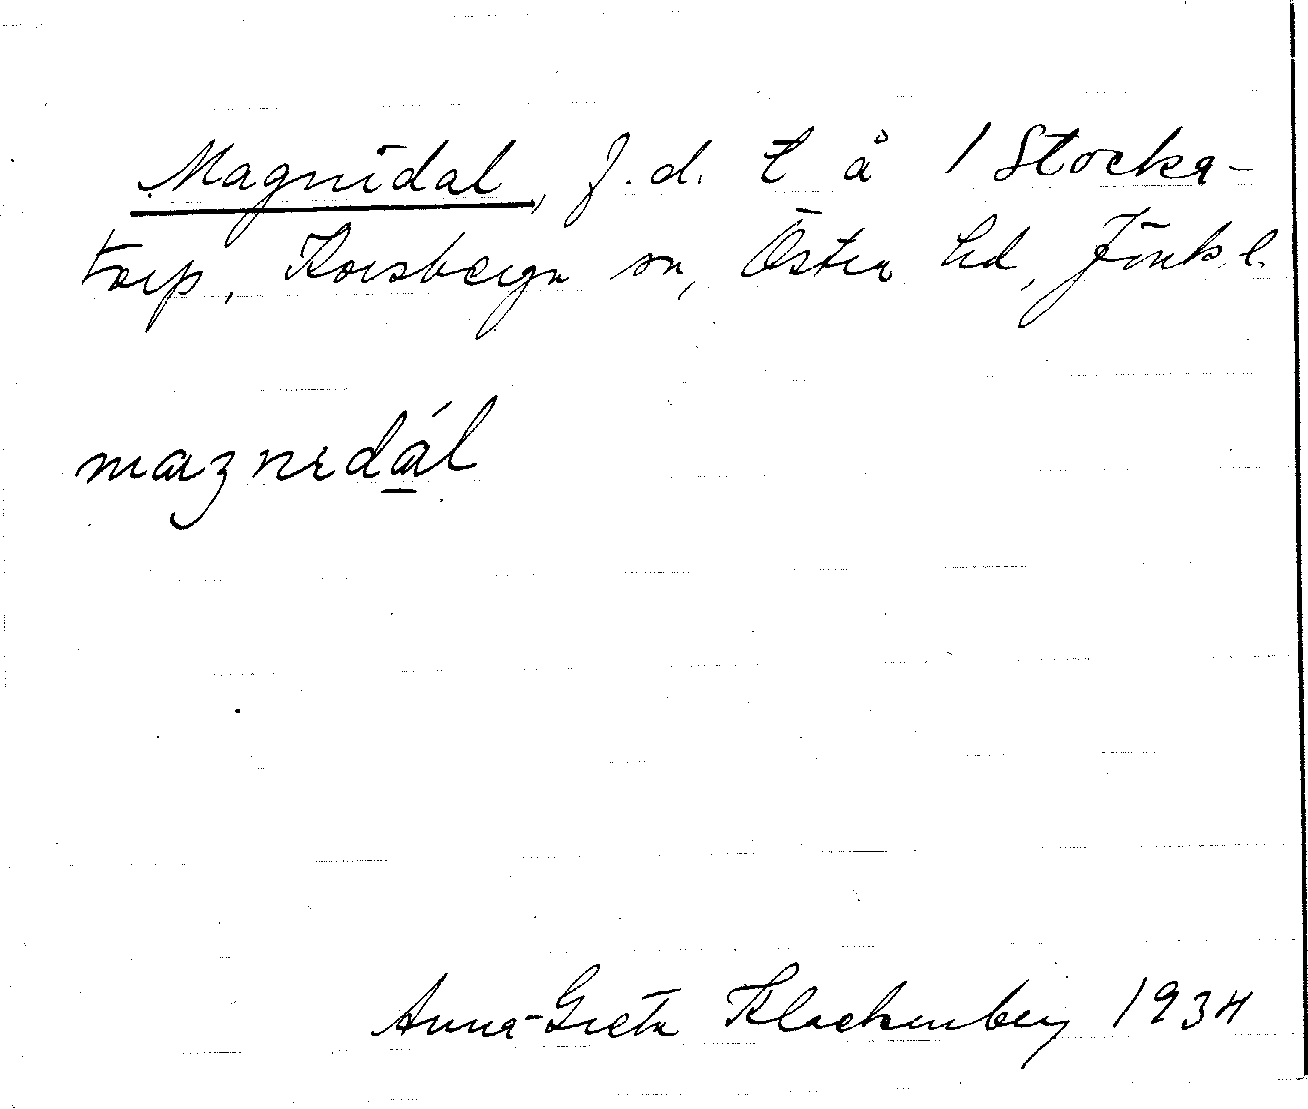 Magnidal, f.d. t å 1 Stocka-
torp, Korsberga sn, Östra hd, Jönk. l.
magnedál
Anna-Greta Klackenberg 1934